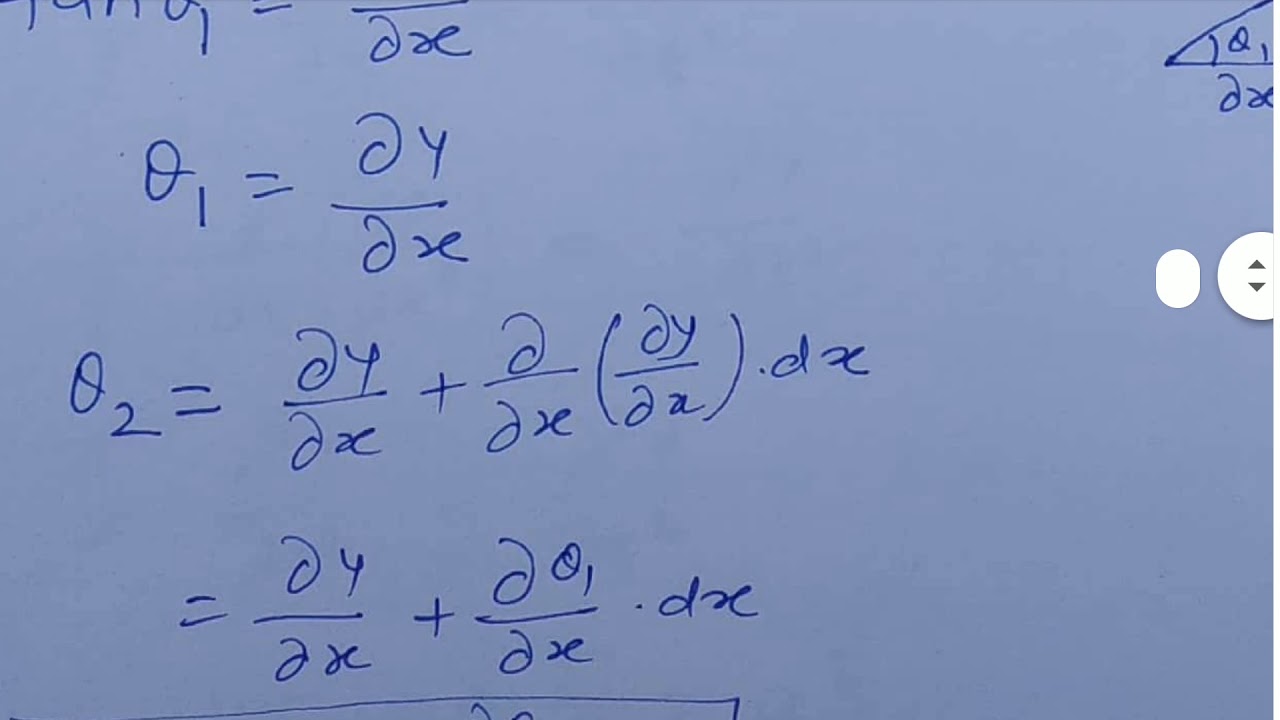 tan θ₁ = ∂x
θ₁
∂x
θ₁ = ∂y/∂x
θ₂ = ∂y/∂x + ∂/∂x (∂y/∂x) . dx
= ∂y/∂x + ∂θ₁/∂x . dx